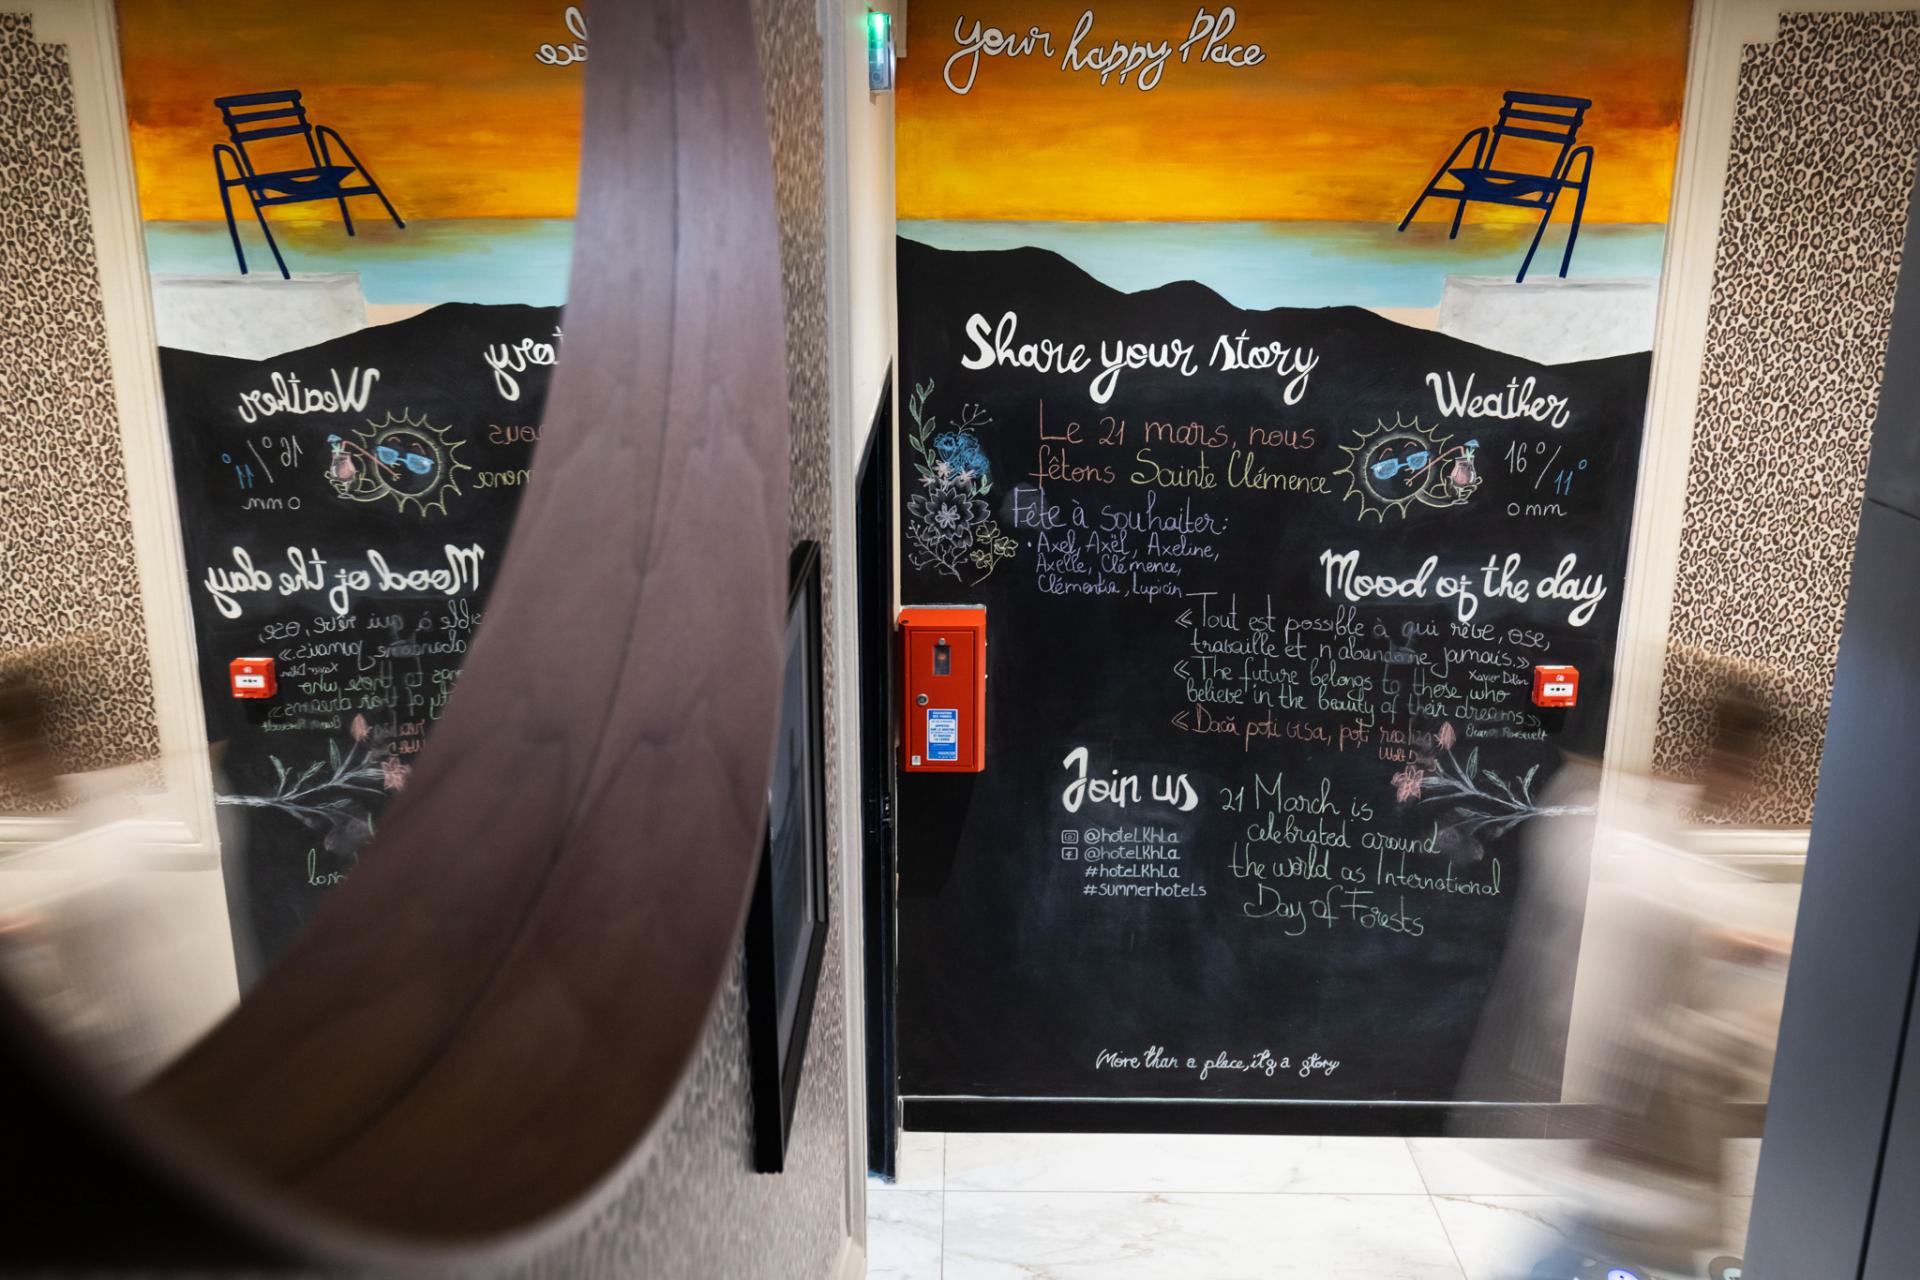 your happy Place
Share your story
Le 21 mars, nous
fêtons Sainte Clémence
Fête à souhaiter:
• Axel, Axël, Axeline,
Axelle, Clémence,
Clémentia, Lupicin
Weather
16°/11°
0 mm
Mood of the day
« Tout est possible à qui rêve, ose,
travaille et n'abandonne jamais. »
Xavier Dolan
« The future belongs to those who
believe in the beauty of their dreams »
Eleanor Roosevelt
« Dacă poți visa, poți
Walt D
Join us
@hoteLKhLa
@hoteLKhLa
#hoteLKhLa
#summerhoteLs
21 March is
celebrated around
the world as International
Day of Forests
More than a place, it's a story